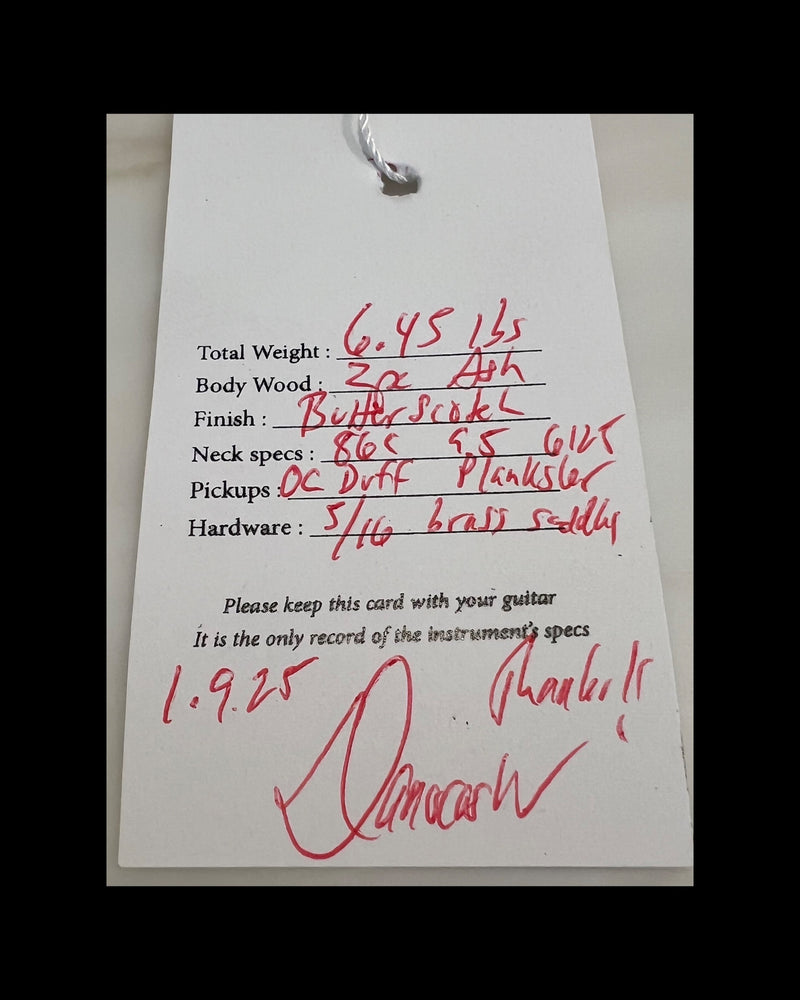 Total Weight : 6.45 lbs
Body Wood : 2pc Ash
Finish : Butterscotch
Neck specs : 86c 9.5 6125
Pickups : OC Duff Plankster
Hardware : 5/16 brass saddles
Please keep this card with your guitar
It is the only record of the instrument's specs
1.9.25 Thanks!!